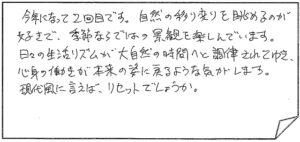 今年になって2回目です。自然の移り変りを眺めるのが
好きで、季節ならではの景観を楽しんでいます。
日々の生活リズムが大自然の時間へと調律されてゆき、
心身の働きが本来の姿に戻るような気がします。
現代風に言えば、リセットでしょうか。